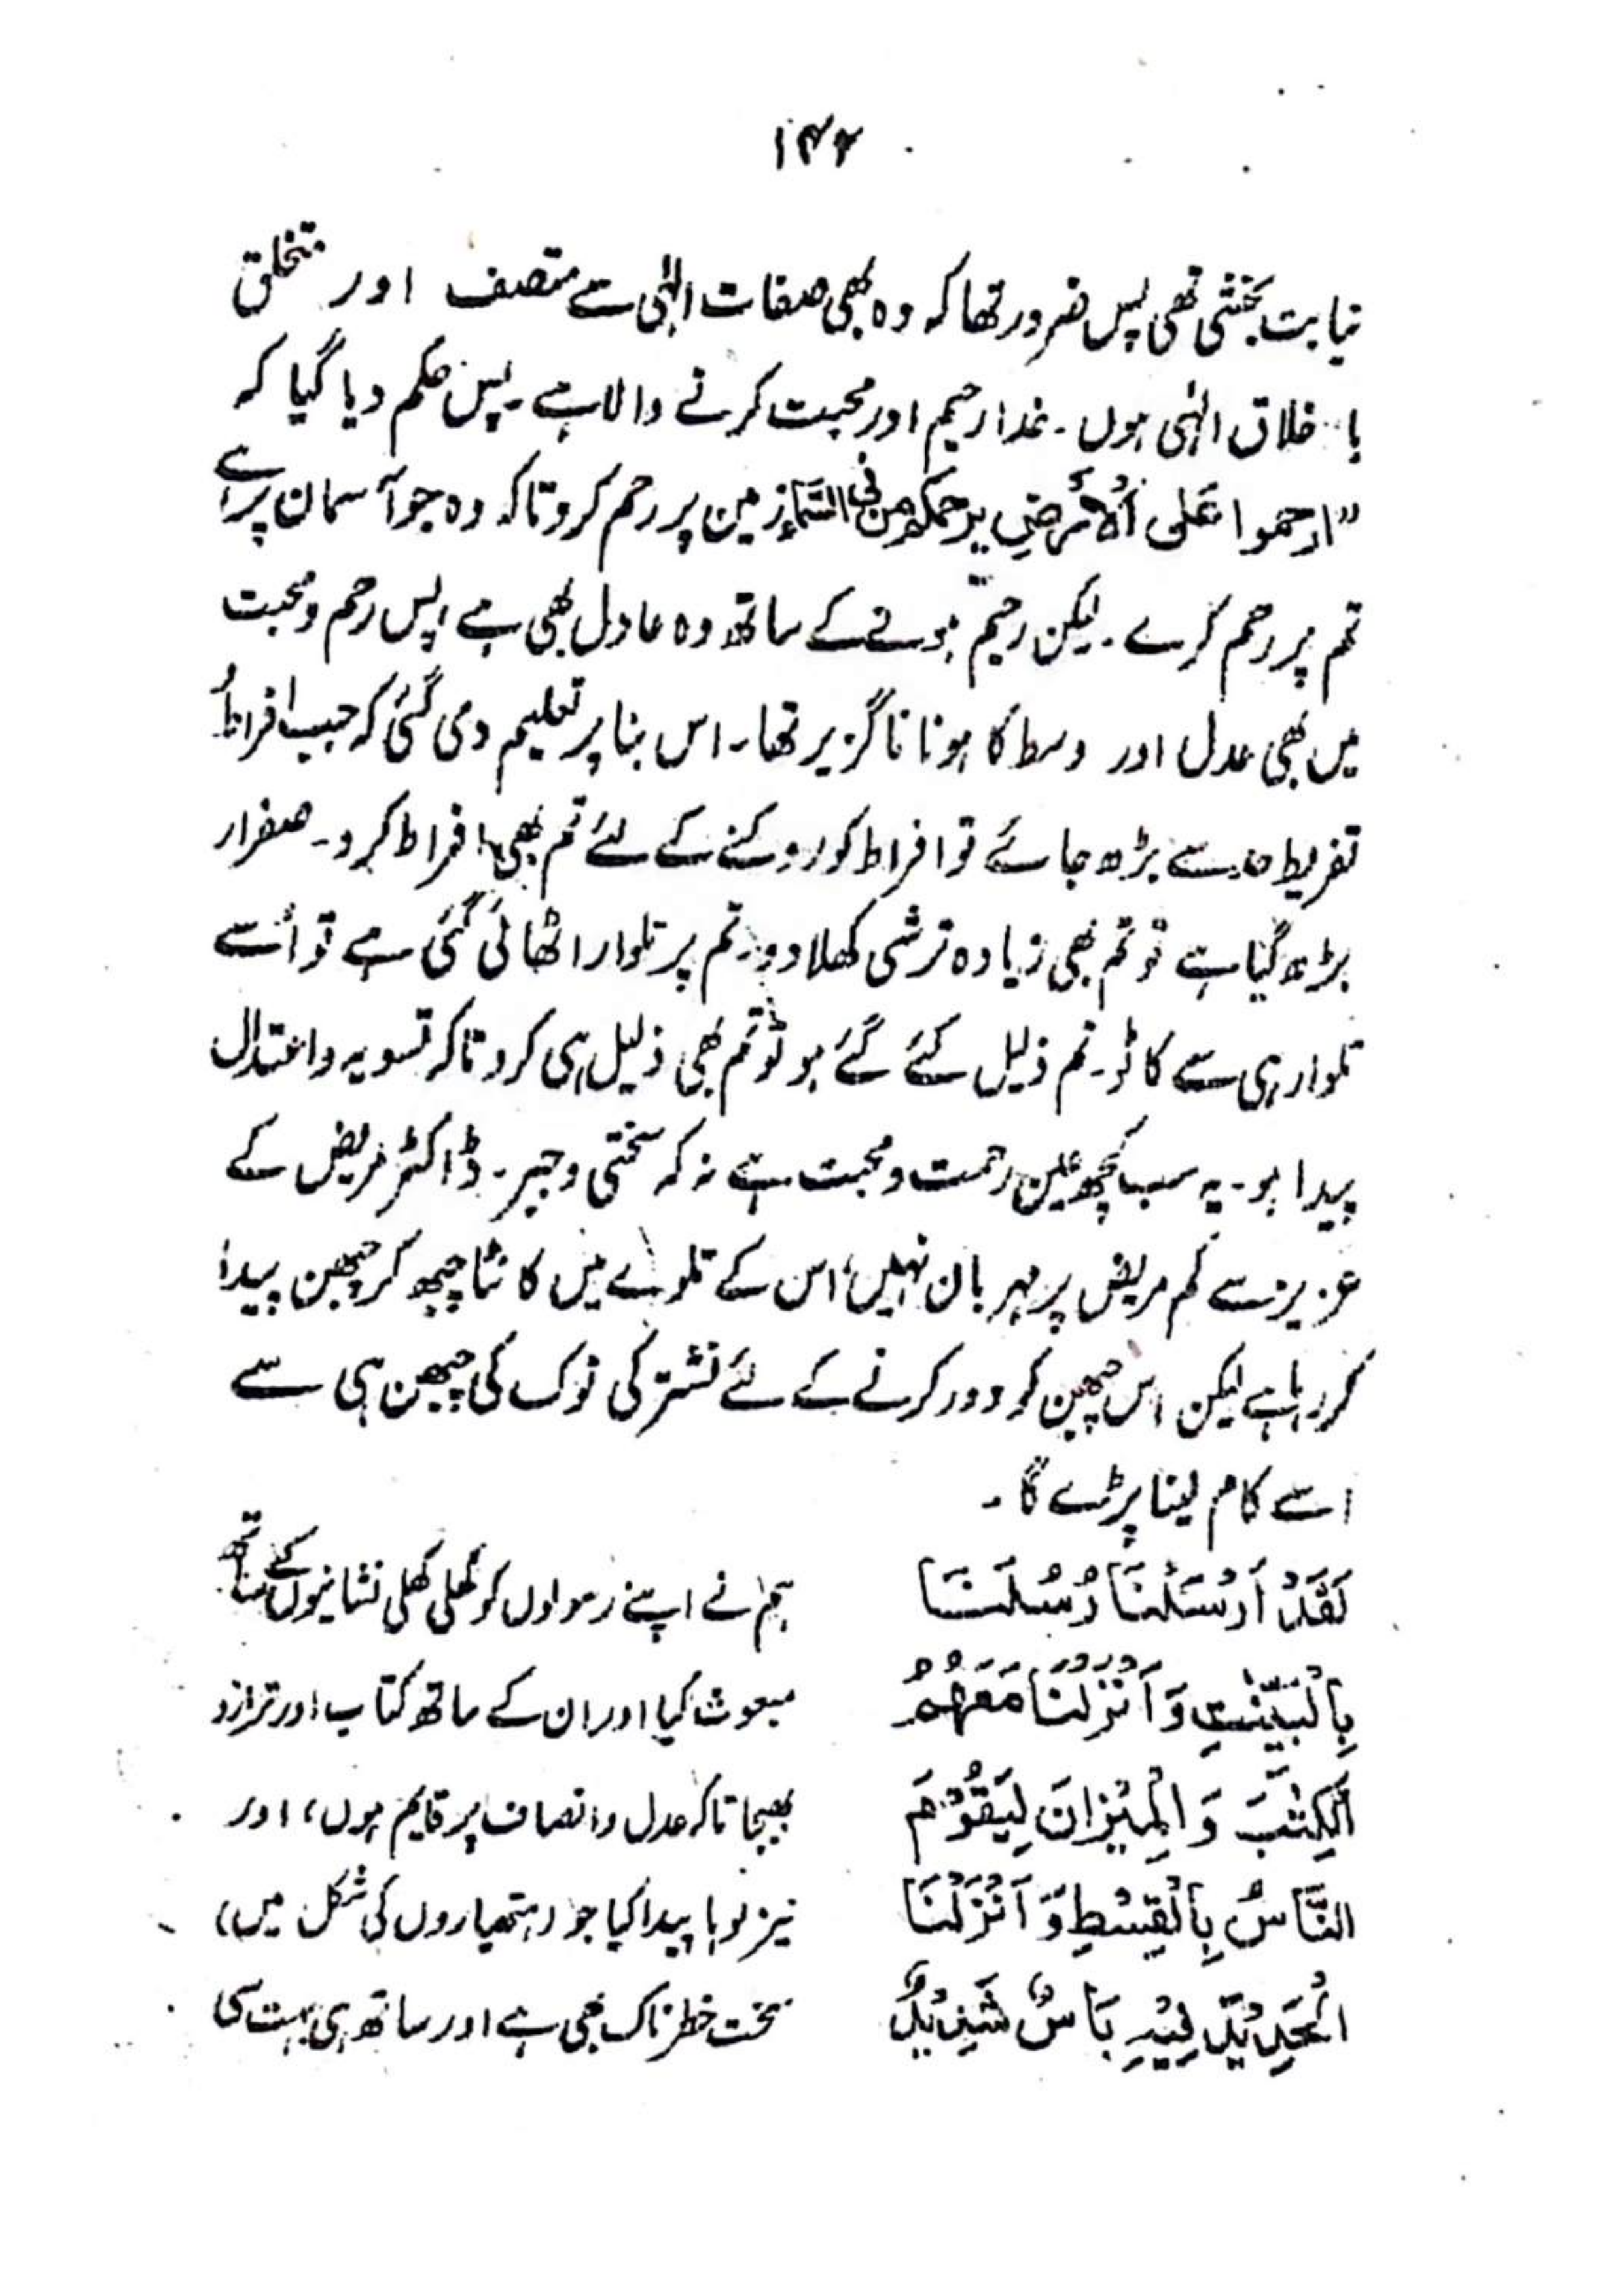 ۱۴۲
نیابت بخشی تھی پس ضرور تھا کہ وہ بھی صفات الٰہی سے متصف اور متخلق
با خلاق الٰہی ہوں۔ خدا رحیم اور محبت کرنے والا ہے۔ پس حکم دیا گیا کہ
"ارحموا عَلی اَلْاَرْضِ یرحمکم من فی السَّمَاءِ زمین پر رحم کرو تاکہ وہ جو آسمان پر ہے
تم پر رحم کرے۔ لیکن رحیم ہونے کے ساتھ وہ عادل بھی ہے، پس رحم و محبت
میں بھی عدل اور وسط کا ہونا ناگزیر تھا۔ اس بنا پر تعلیم دی گئی کہ جب افراط
تفریط حد سے بڑھ جائے تو افراط کو روکنے کے لئے تم بھی افراط کرو۔ صفرا
بڑھ گیا ہے تو تم بھی زیادہ ترشی کھلا دو۔ تم پر تلوار اٹھائی گئی ہے تو اُسے
تلوار ہی سے کاٹو۔ تم ذلیل کئے گئے ہو تو تم بھی ذلیل ہی کرو تاکہ تسویہ و اعتدال
پیدا ہو۔ یہ سب کچھ عین رحمت و محبت ہے نہ کہ سختی و جبر۔ ڈاکٹر مریض کے
عزیز سے کم مریض پر مہربان نہیں، اس کے تلوے میں کانٹا چبھ کر چبھن پیدا
کر رہا ہے لیکن اس چبھن کو دور کرنے کے لئے نشتر کی نوک کی چبھن ہی سے
اسے کام لینا پڑے گا۔
لَقَدْ اَرْسَلْنَا رُسُلَنَا ہم نے اپنے رسولوں کو کھلی کھلی نشانیوں کے ساتھ
بِالْبَیِّنٰتِ وَ اَنْزَلْنَا مَعَهُمُ مبعوث کیا اور ان کے ساتھ کتاب اور ترازو
الْکِتٰبَ وَ الْمِیْزَانَ لِیَقُوْمَ بھیجا تاکہ عدل و انصاف پر قایم ہوں، اور
النَّاسُ بِالْقِسْطِ وَ اَنْزَلْنَا نیز لوہا پیدا کیا جو (ہتھیاروں کی شکل میں)
الْحَدِیْدَ فِیْهِ بَاْسٌ شَدِیْدٌ سخت خطرناک بھی ہے اور ساتھ ہی بہت سی